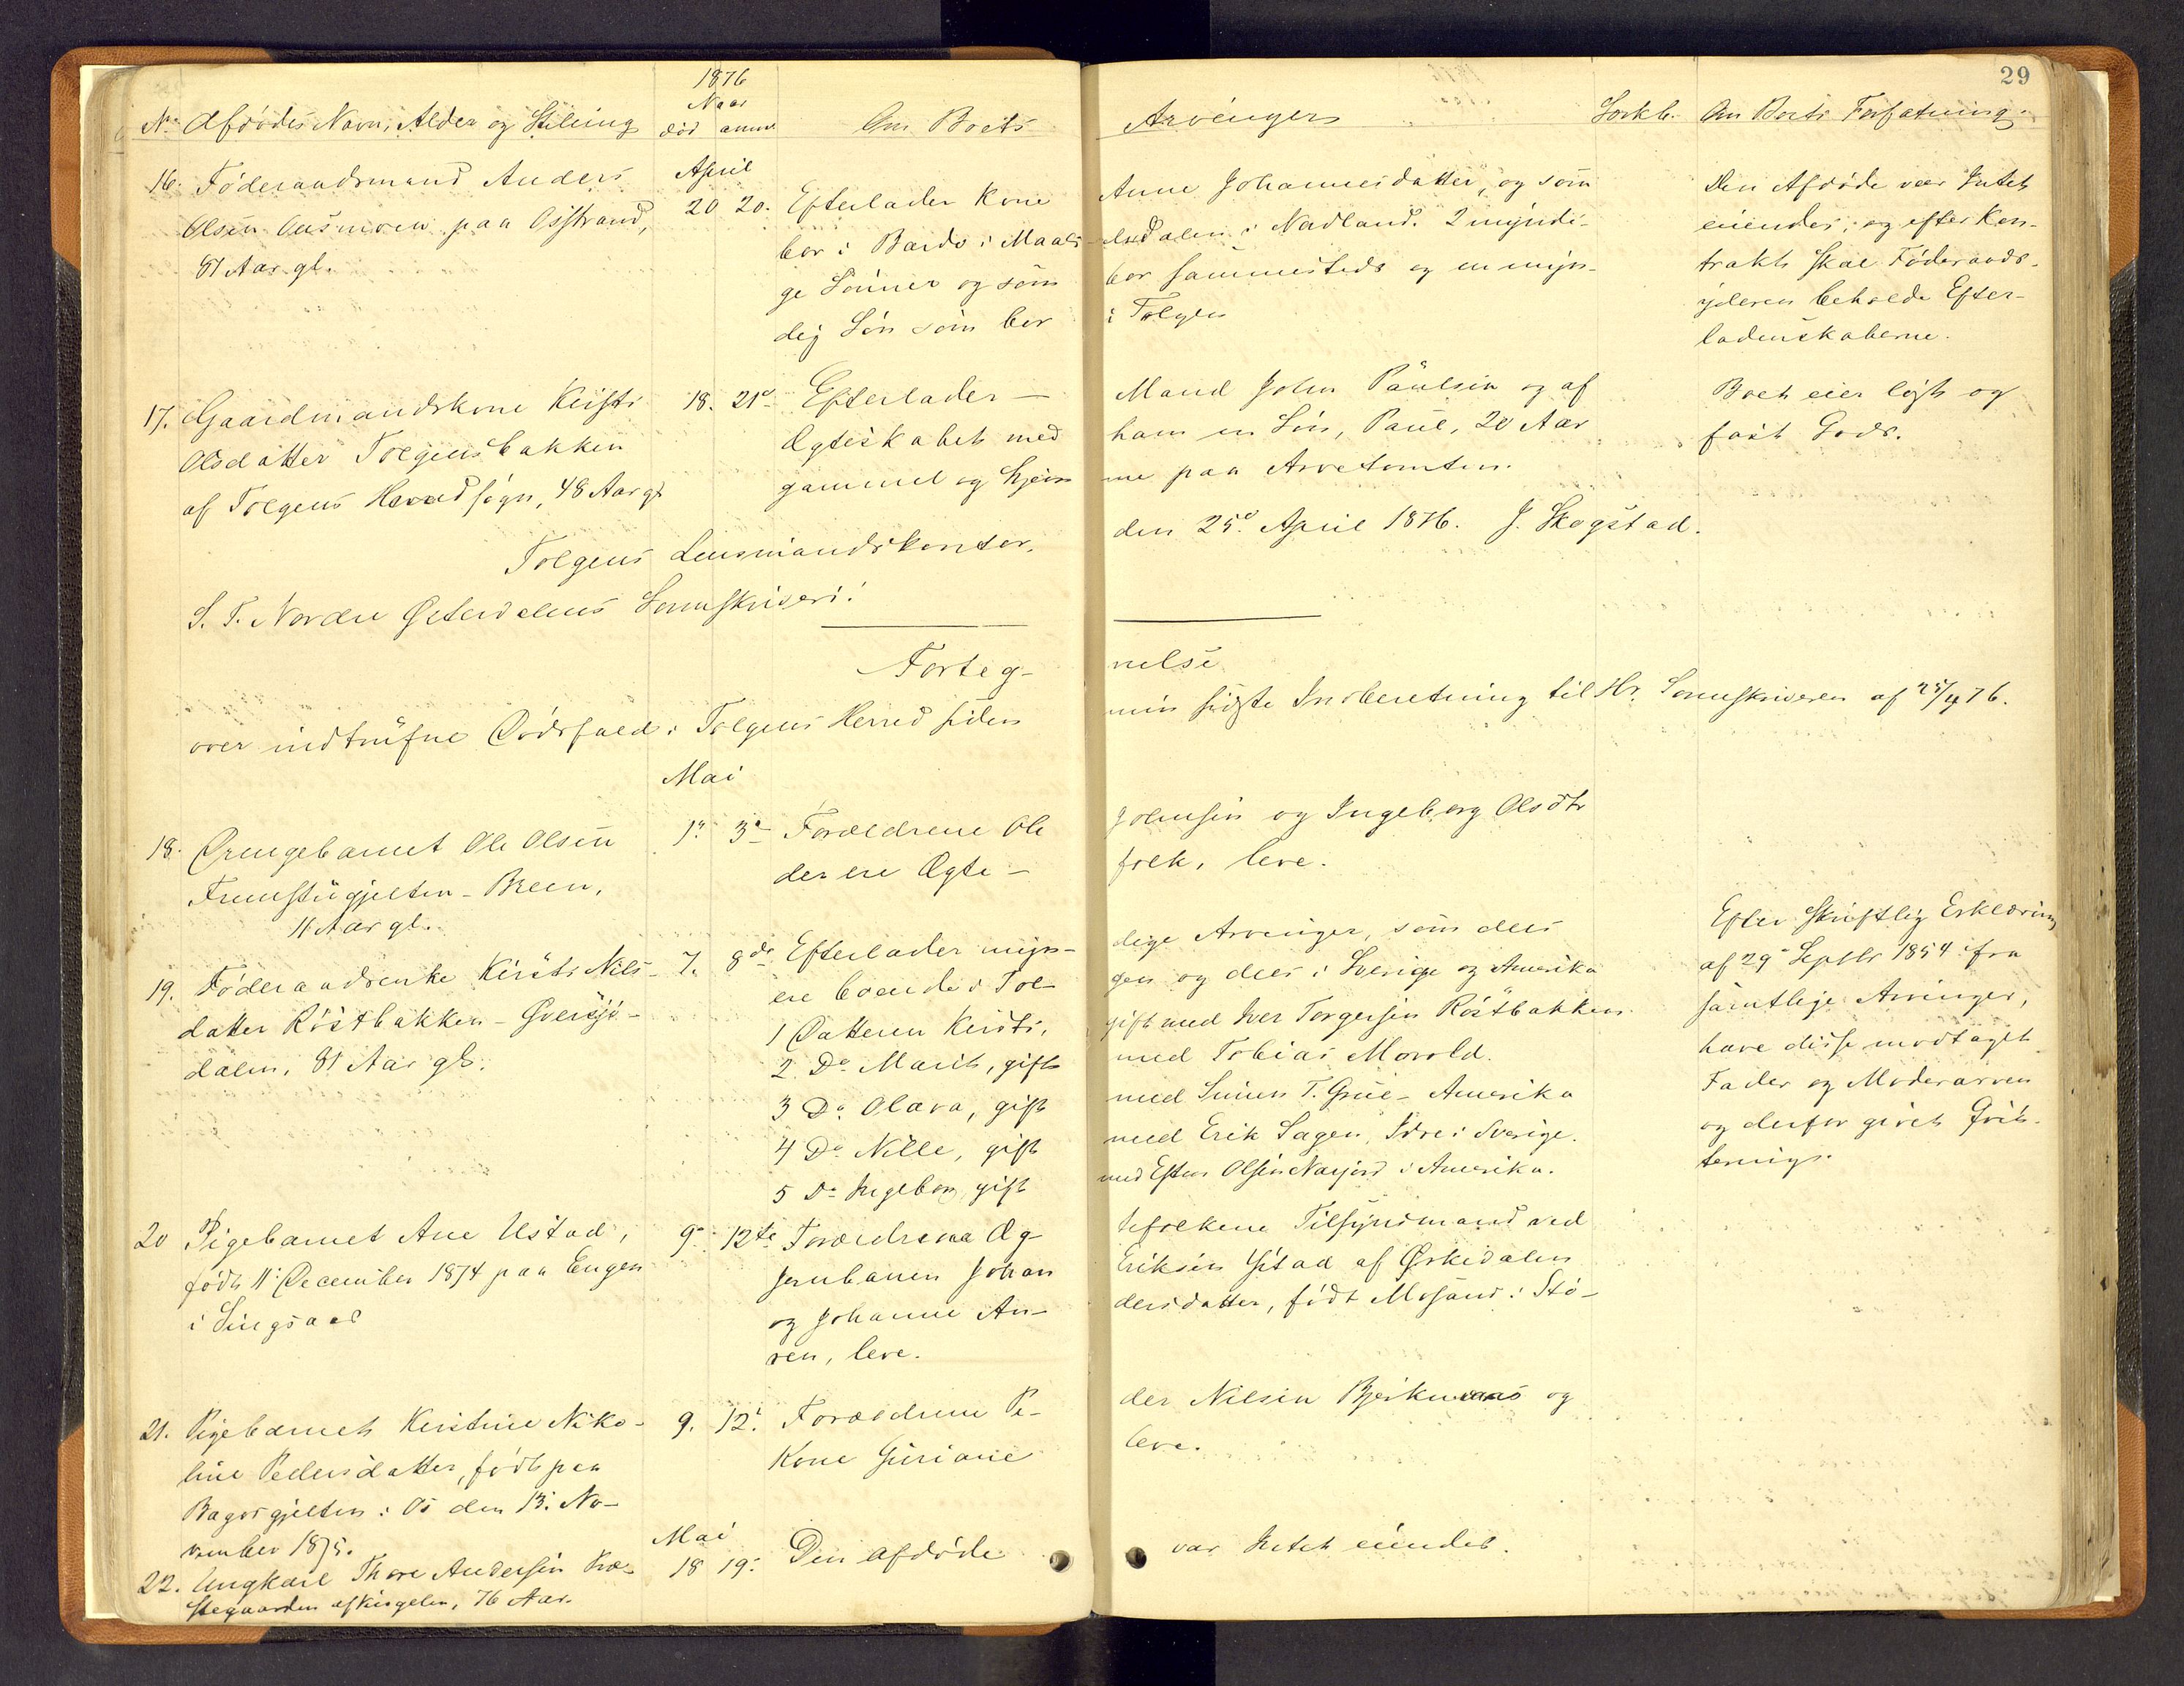 29
1876
Naar
No. Afdødes Navn, Alder og Stilling død anm. Om Boets Arvinger Lovkb. Om Boets Forfatning.
April
16. Føderaadsmand Anders 20 20. Efterlader Kone Anne Johannesdatter, og som Den Afdøde var Intet
Olsen Ausmoen paa Osstrand, bor i Bardo i Maals elvdalen i Nordland. 2 myndi- eiendes; og efter Kon-
81 Aar gl. ge Sønner og som bor sammesteds og en myn- trakt skal Føderaads-
dig Søn som bor i Tolgen yderen beholde Efter-
ladenskaberne.
17. Gaardmandskone Kirsti 18. 21d Efterlader — Mand John Paulsen og af Boet eier løst og
Olsdatter Tolgensbakken Ægteskabet med ham en Søn, Paul, 20 Aar fast Gods.
af Tolgens Hovedsogn, 48 Aar gl gammel og hjem me paa Arvetomten.
Tolgens Lensmandskontor, den 25d April 1876. J. Skogstad.
S. T. Nordre Østerdalens Sorenskriveri!
Forteg- nelse
over indtrufne Dødsfald i Tolgens Herred siden min sidste Indberetning til Hr. Sorenskriveren af 25/4 76.
Mai
18. Drengebarnet Ole Olsen 1. 3d Forældrene Ole Johnsen og Ingeborg Olsdtr
Fremstugjelten-Breen, der ere Ægte- folk, leve.
11 Aar gl.
19. Føderaadsenke Kirsti Nils- 7. 8de Efterlader myn- dige Arvinger, som dels Efter skriftlig Erklæring
datter Røstbakken - Øversjø- ere boende i Tol- gen og dels i Sverige og Amerika af 29 Septbr 1854 fra
dalen, 81 Aar gl. 1 Datteren Kirsti, gift med Iver Torgersen Røstbakken. samtlige Arvinger,
2. Do Marit, gift med Tobias Morold. have disse modtaget
3 Do Olava, gift med Simen T. Grue - Amerika Fader og Moderarven
4 Do Nille, gift med Erik Sagen, Idre i Sverige. og derfor givet Kvit-
5 Do Ingeborg gift med Esten Olsen Narjord i Amerika. tering.
20 Pigebarnet Ane Ustad, 9. 12te Forældrene Æg tefolkene Tilsynsmand ved
født 11 December 1874 paa Engen Jernbanen Johan Eriksen Ystad af Ørkedalen
i Singsaas og Johanne An- dersdatter, født Mosand i Stø-
ren, leve.
21. Pigebarnet Kirstine Niko- 9. 12. Forældrene Pe- der Nilsen Bjerknæs og
line Pedersdatter, født paa Kone Guriane leve.
Bagosgjelten i Os den 13. No-
vember 1875.
Mai
22. Ungkarl Thore Andersen Præ- 18 19. Den afdøde var Intet eiendes.
stegaarden af Tolgen, 76 Aar.